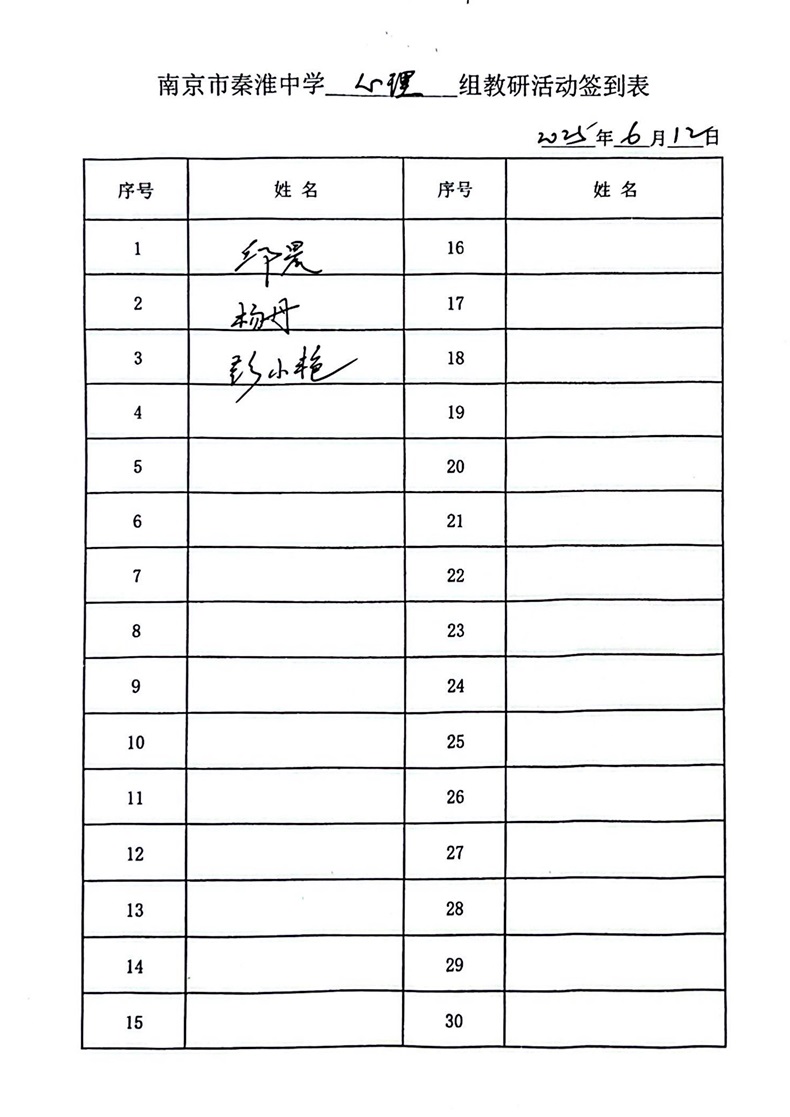 南京市秦淮中学 心理 组教研活动签到表
2025年6月12日
序号 姓名 序号 姓名
1 16
2 杨丹 17
3 彭小艳 18
4 19
5 20
6 21
7 22
8 23
9 24
10 25
11 26
12 27
13 28
14 29
15 30